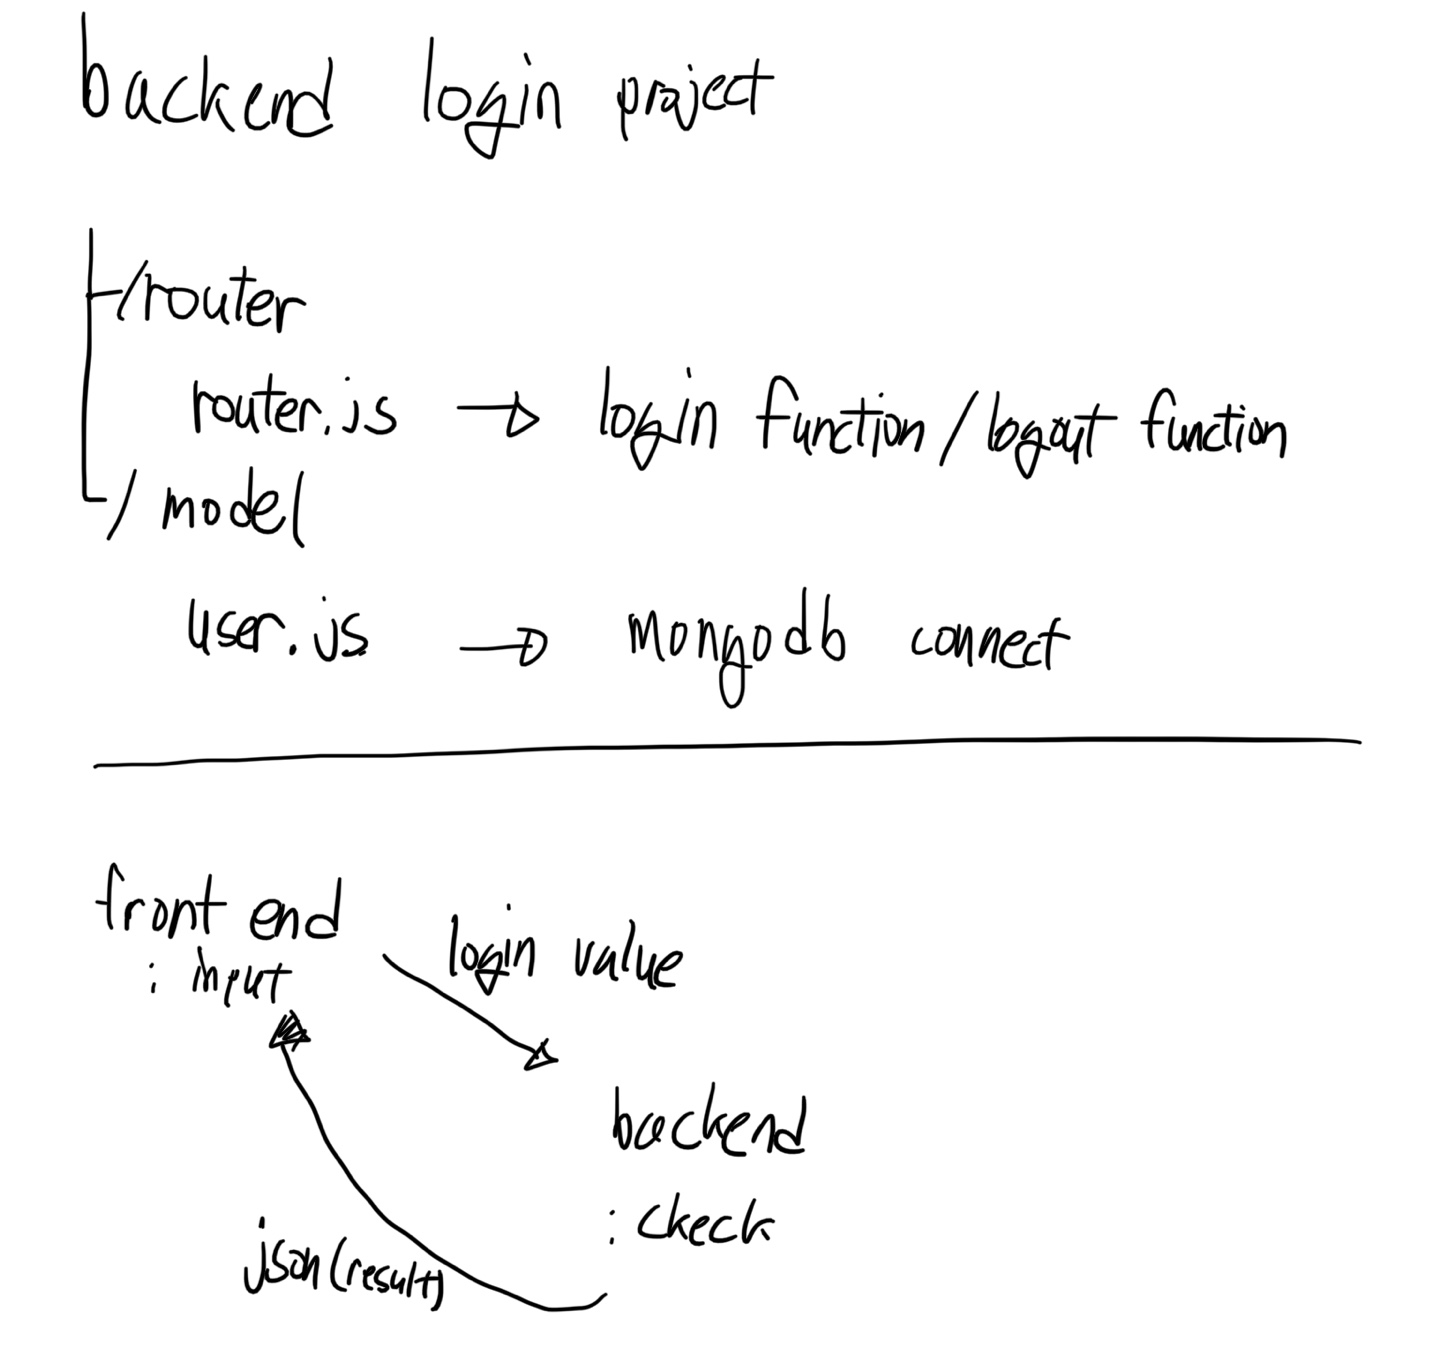 backend login project
/router
router.js → login function / logout function
/ model
user.js → mongodb connect
front end
: input
login value
backend
: ckeck
json(result)